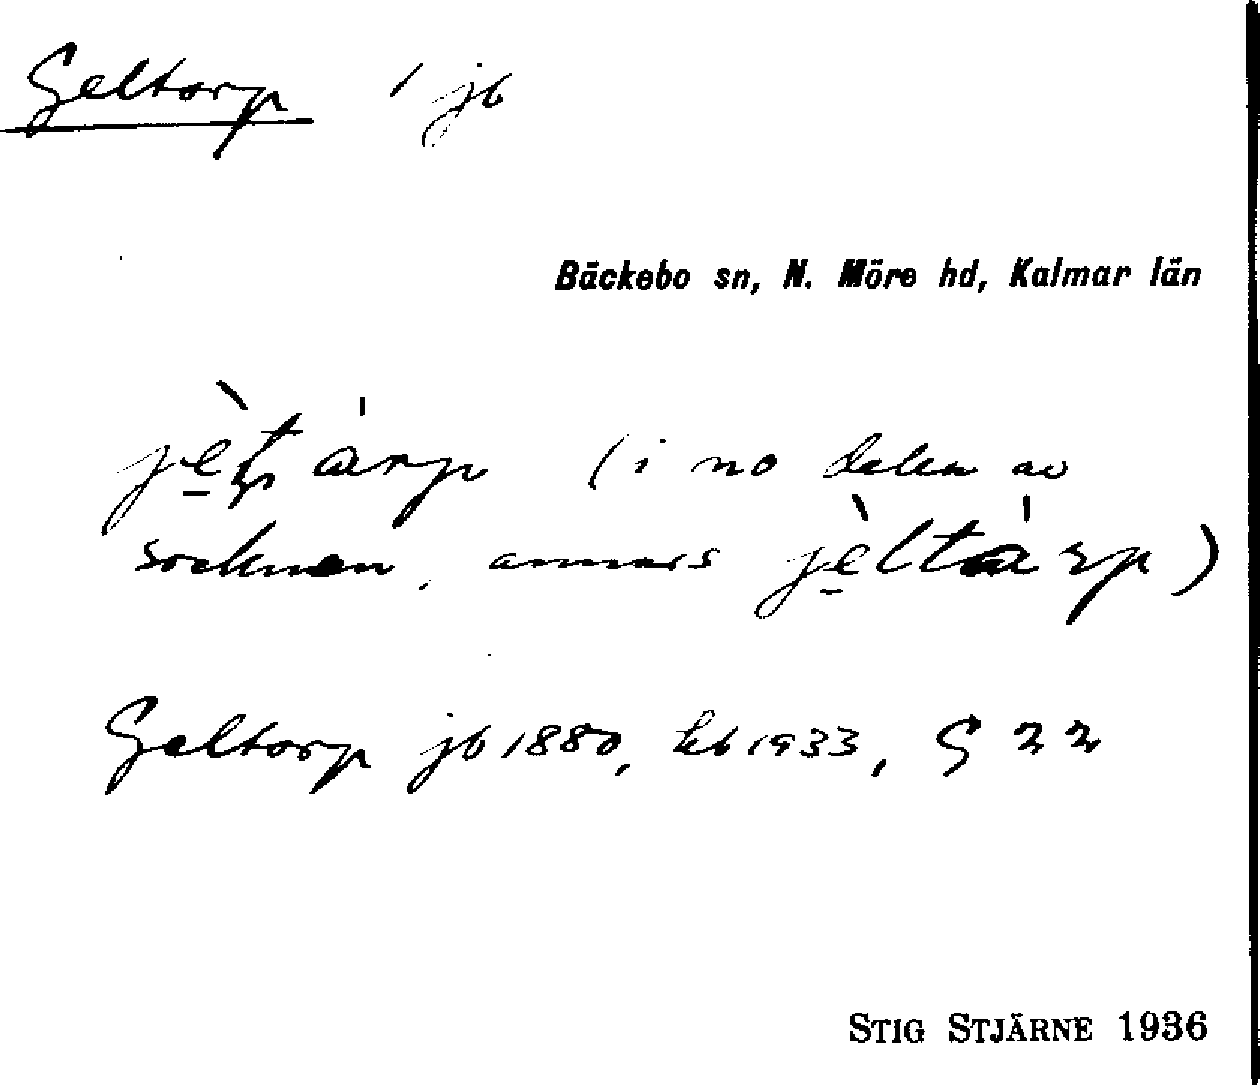 Geltorp 1 jb
Bäckebo sn, N. Möre hd, Kalmar län
jè̱ṭárp (i no delen av
socknen, annars jè̱ltárp)
Geltorp jb 1880, kb 1933, G 22
STIG STJÄRNE 1936